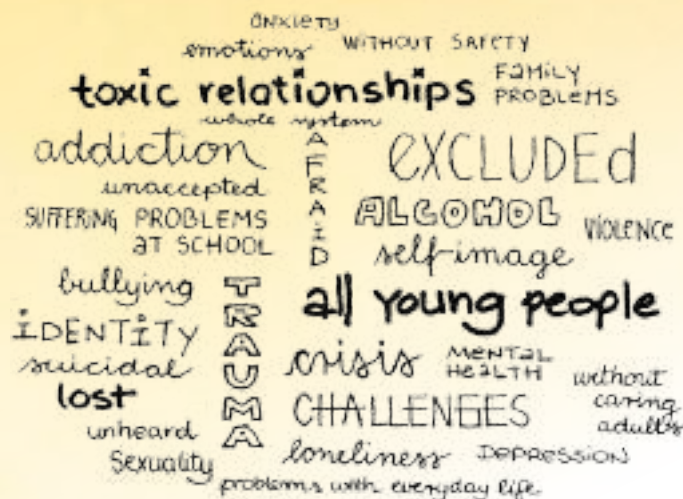 anxiety
emotions WITHOUT SAFETY
toxic relationships FAMILY PROBLEMS
whole system
addiction EXCLUDEd
unaccepted
AFRAID
SUFFERING PROBLEMS AT SCHOOL
ALCOHOL VIOLENCE
self-image
bullying
TRAUMA
all young people
iDENTiTY
suicidal
crisis MENTAL HEALTH
without caring adults
lost
CHALLENGES
unheard
loneliness DEPRESSION
Sexuality
problems with everyday life